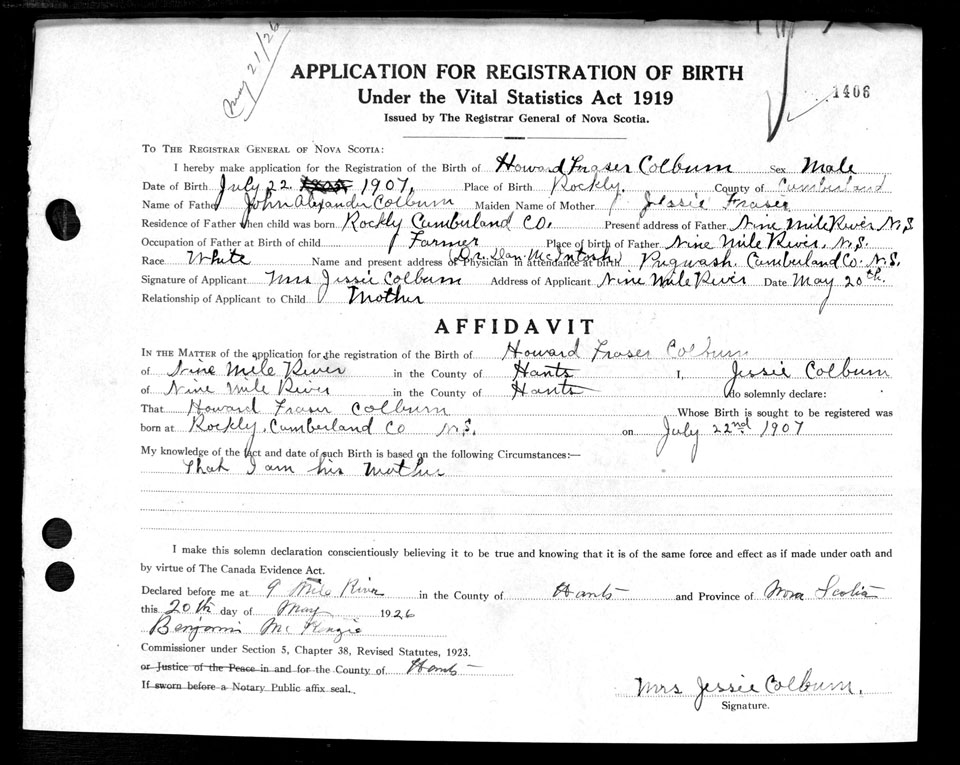 May 21/26
APPLICATION FOR REGISTRATION OF BIRTH
Under the Vital Statistics Act 1919
1406
Issued by The Registrar General of Nova Scotia.
TO THE REGISTRAR GENERAL OF NOVA SCOTIA:
I hereby make application for the Registration of the Birth of Howard Fraser Colburn Sex Male
Date of Birth July 22. 1907. Place of Birth Rockly. County of Cumberland
Name of Father John Alexander Colburn Maiden Name of Mother Jessie Fraser
Residence of Father when child was born Rockly Cumberland Co. Present address of Father Nine Mile River N.S
Occupation of Father at Birth of child Farmer Place of birth of Father Nine Mile River, N.S.
Race White Name and present address of Physician in attendance at birth (Dr. Dan McIntosh) Pugwash. Cumberland Co. N.S.
Signature of Applicant Mrs Jessie Colburn Address of Applicant Nine Mile River Date May 20th.
Relationship of Applicant to Child Mother
AFFIDAVIT
IN THE MATTER of the application for the registration of the Birth of Howard Fraser Colburn
of Nine Mile River in the County of Hants I, Jessie Colburn
of Nine Mile River in the County of Hants do solemnly declare:
That Howard Fraser Colburn Whose Birth is sought to be registered was
born at Rockly. Cumberland Co N.S. on July 22nd 1907
My knowledge of the fact and date of such Birth is based on the following Circumstances:—
That I am his Mother
I make this solemn declaration conscientiously believing it to be true and knowing that it is of the same force and effect as if made under oath and
by virtue of The Canada Evidence Act.
Declared before me at 9 Mile River in the County of Hants and Province of Nova Scotia
this 20th day of May 1926
Benjamin McKenzie
Commissioner under Section 5, Chapter 38, Revised Statutes, 1923.
or Justice of the Peace in and for the County of Hants
If sworn before a Notary Public affix seal.
Mrs Jessie Colburn.
Signature.